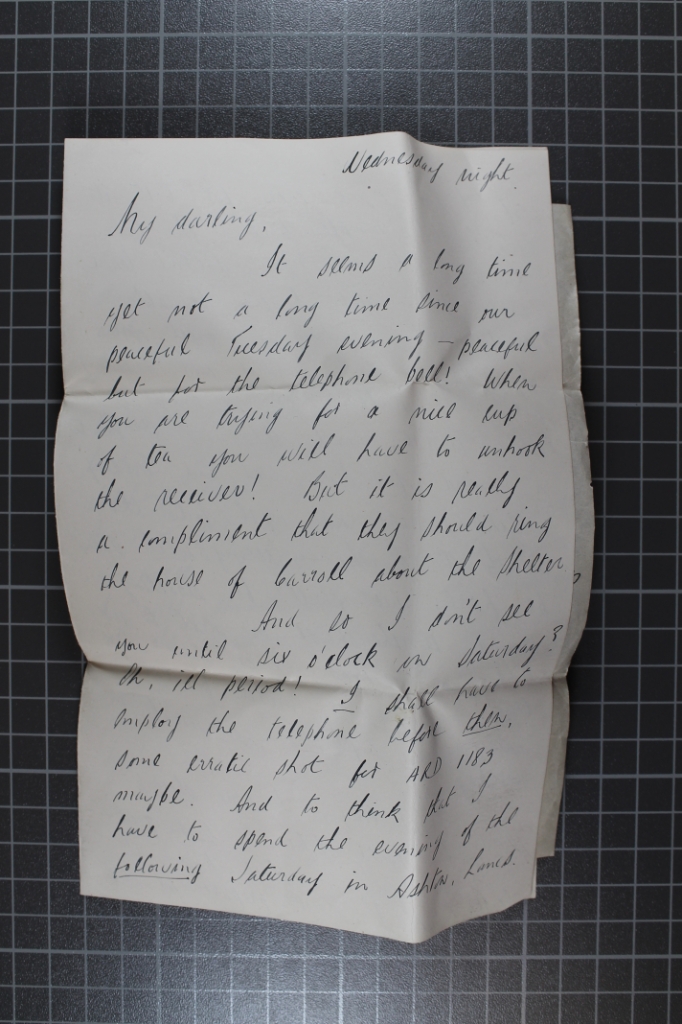 Wednesday night.
My darling,
It seems a long time
yet not a long time since our
peaceful Tuesday evening – peaceful
but for the telephone bell! When
you are trying for a nice cup
of tea you will have to unhook
the receiver! But it is really
a compliment that they should ring
the house of Carroll about the shelter.
And so I don't see
you until six o'clock on Saturday?
Oh, ill period! I shall have to
employ the telephone before then,
some erratic shot for ARD 1183
maybe. And to think that I
have to spend the evening of the
following Saturday in Ashton, Lancs.